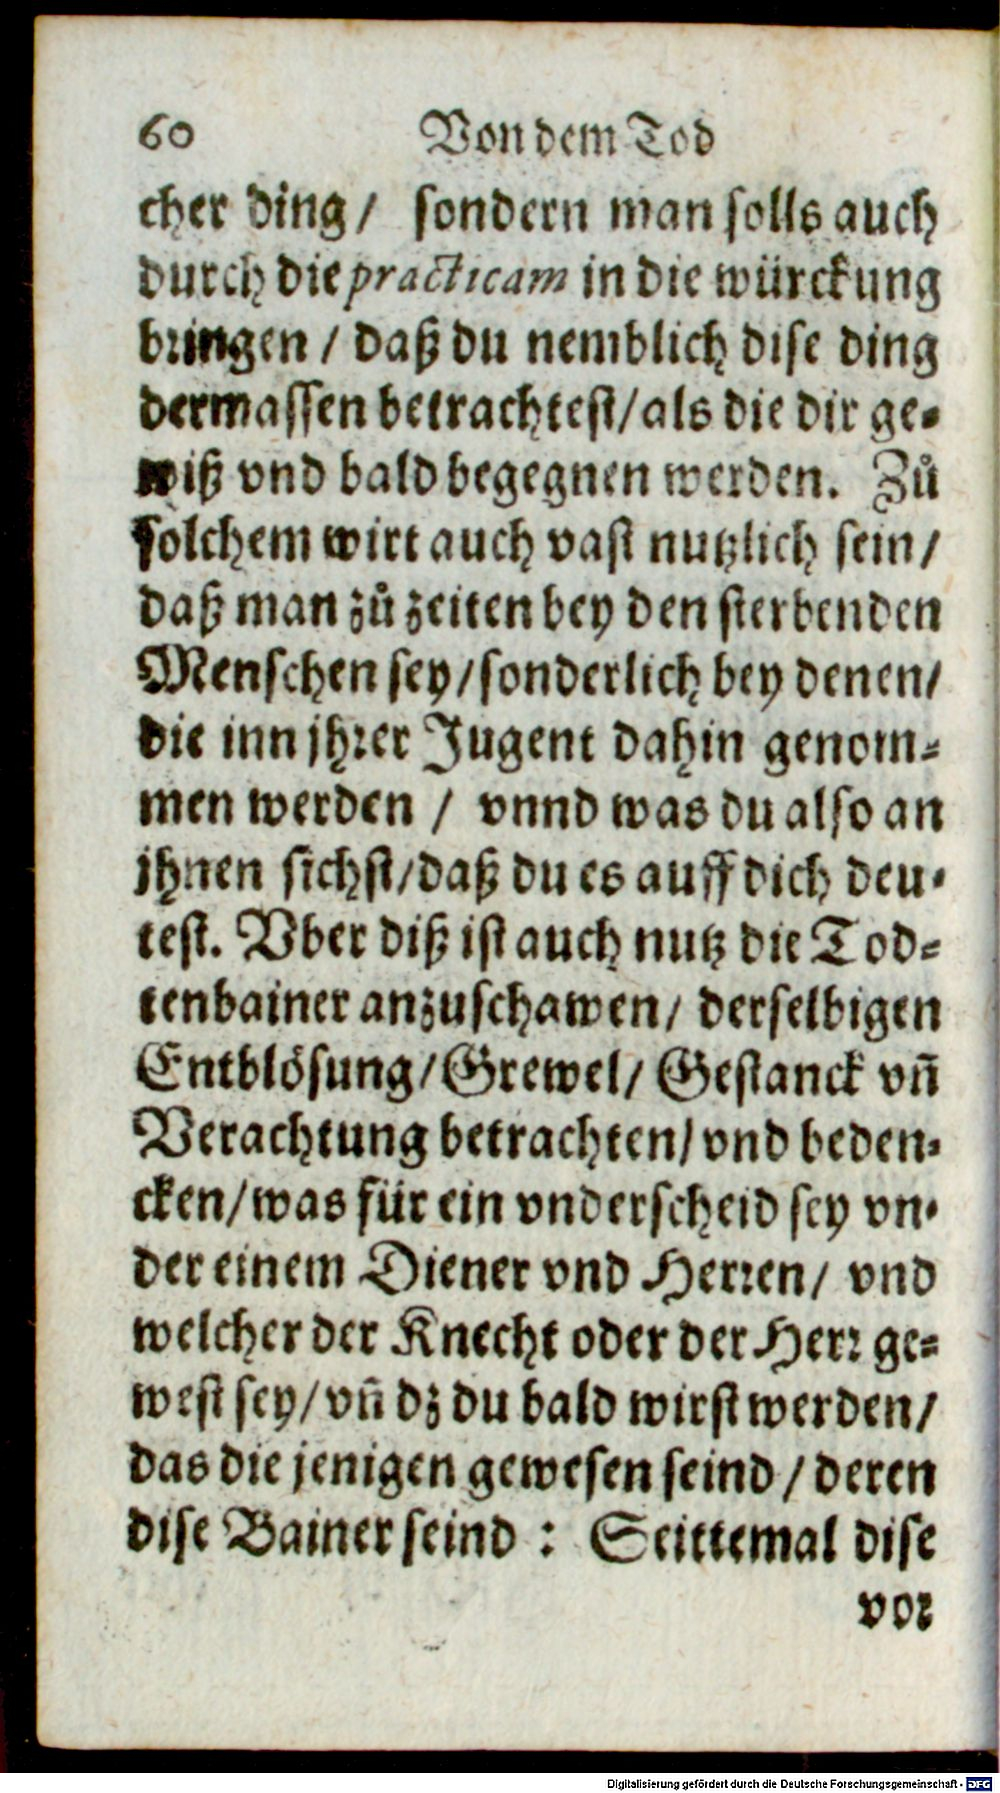 60 Von dem Tod
cher ding/ sondern man solls auch
durch die practicam in die würckung
bringen / daß du nemblich dise ding
dermassen betrachtest/als die dir ge-
wiß vnd bald begegnen werden. Zů
solchem wirt auch vast nutzlich sein/
daß man zů zeiten bey den sterbenden
Menschen sey/sonderlich bey denen/
die inn jhrer Jugent dahin genom-
men werden / vnnd was du also an
jhnen sichst/daß du es auff dich deu-
test. Vber diß ist auch nutz die Tod-
tenbainer anzuschawen/ derselbigen
Entblösung/Grewel/ Gestanck vñ
Verachtung betrachten/vnd beden-
cken/was für ein vnderscheid sey vn-
der einem Diener vnd Herren/ vnd
welcher der Knecht oder der Herr ge-
west sey/vñ dz du bald wirst werden/
das die jenigen gewesen seind/deren
dise Bainer seind : Seittemal dise
vor
Digitalisierung gefördert durch die Deutsche Forschungsgemeinschaft - DFG